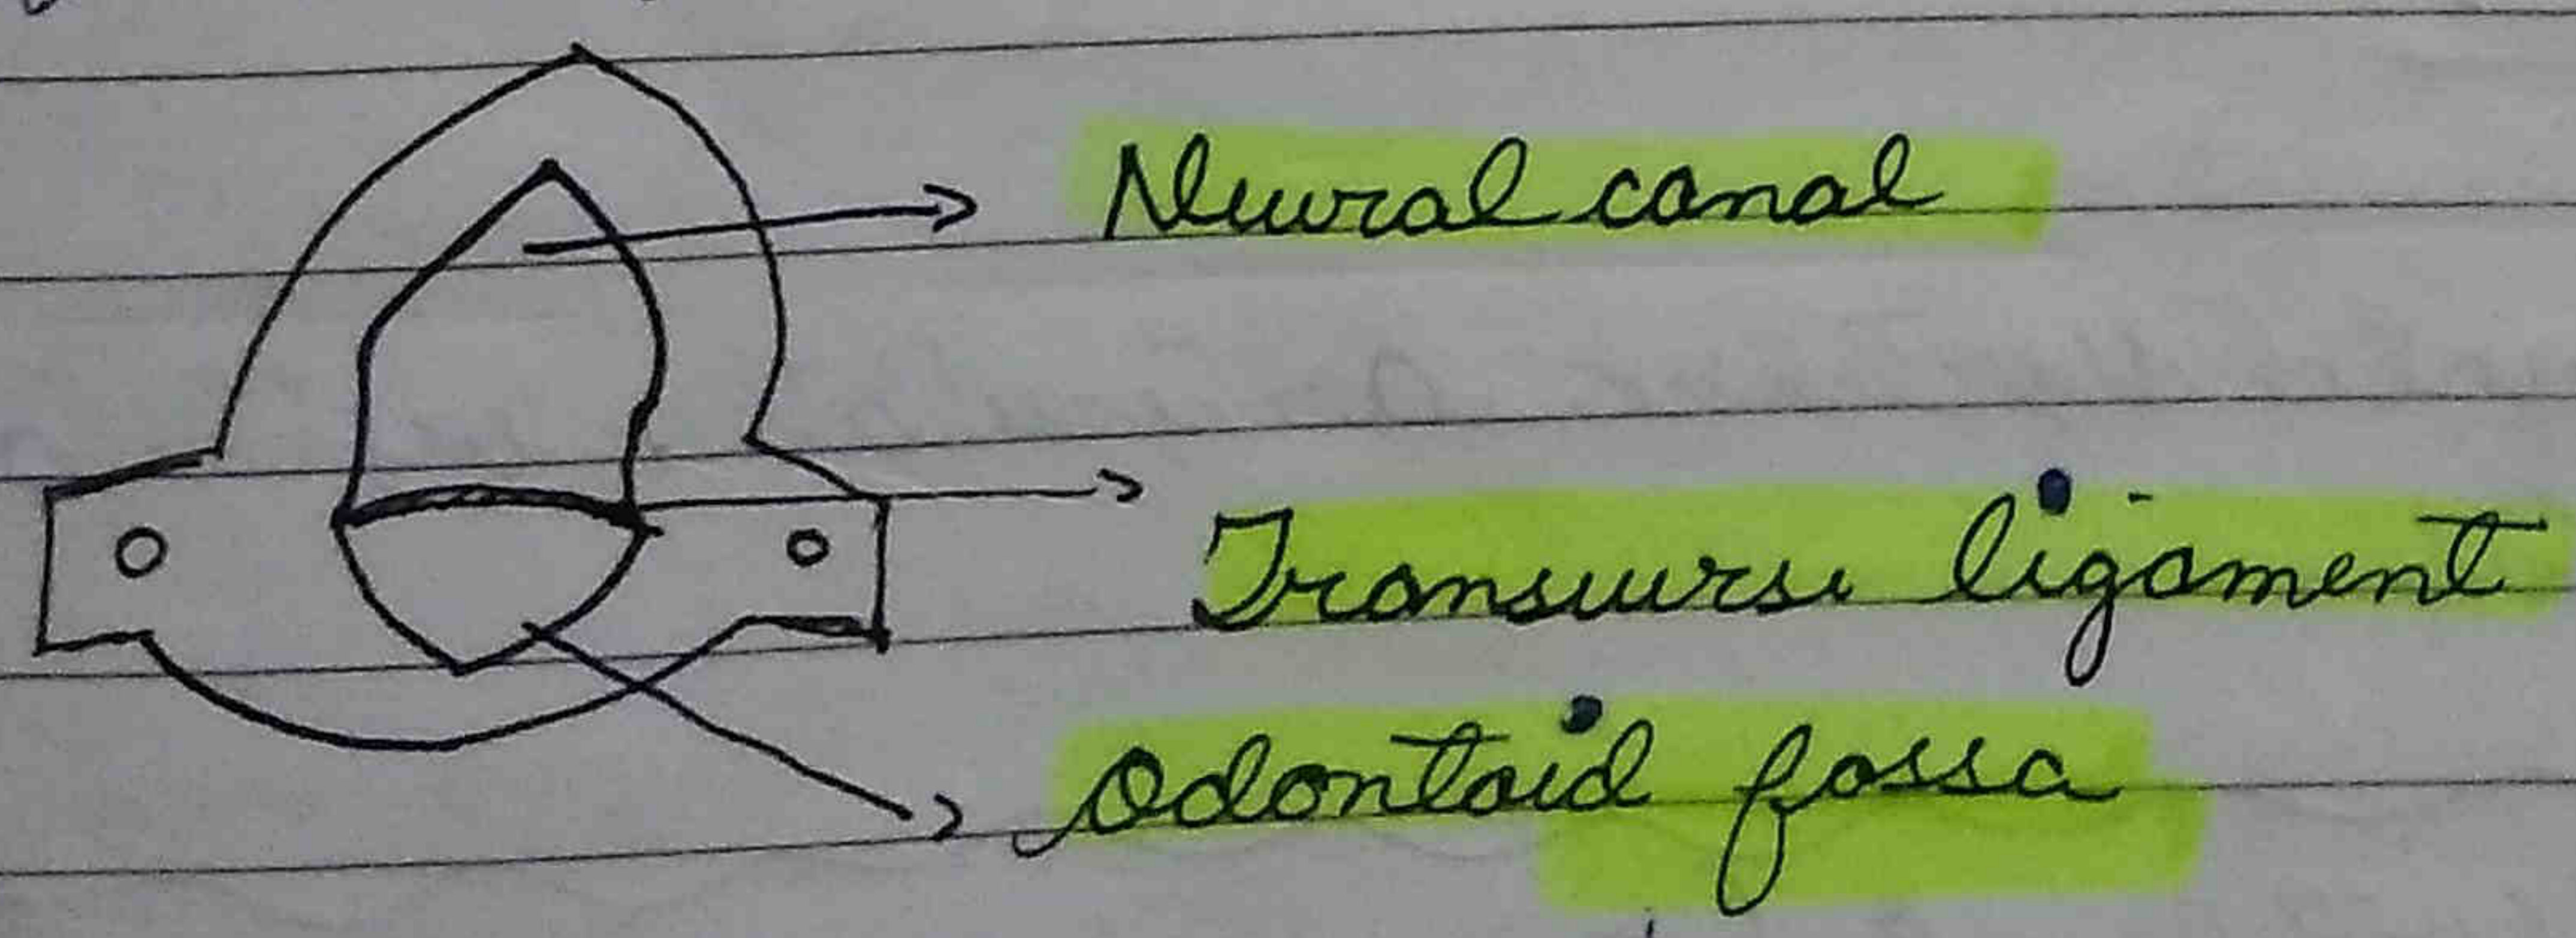 Neural canal
Transverse ligament
odontoid fossa